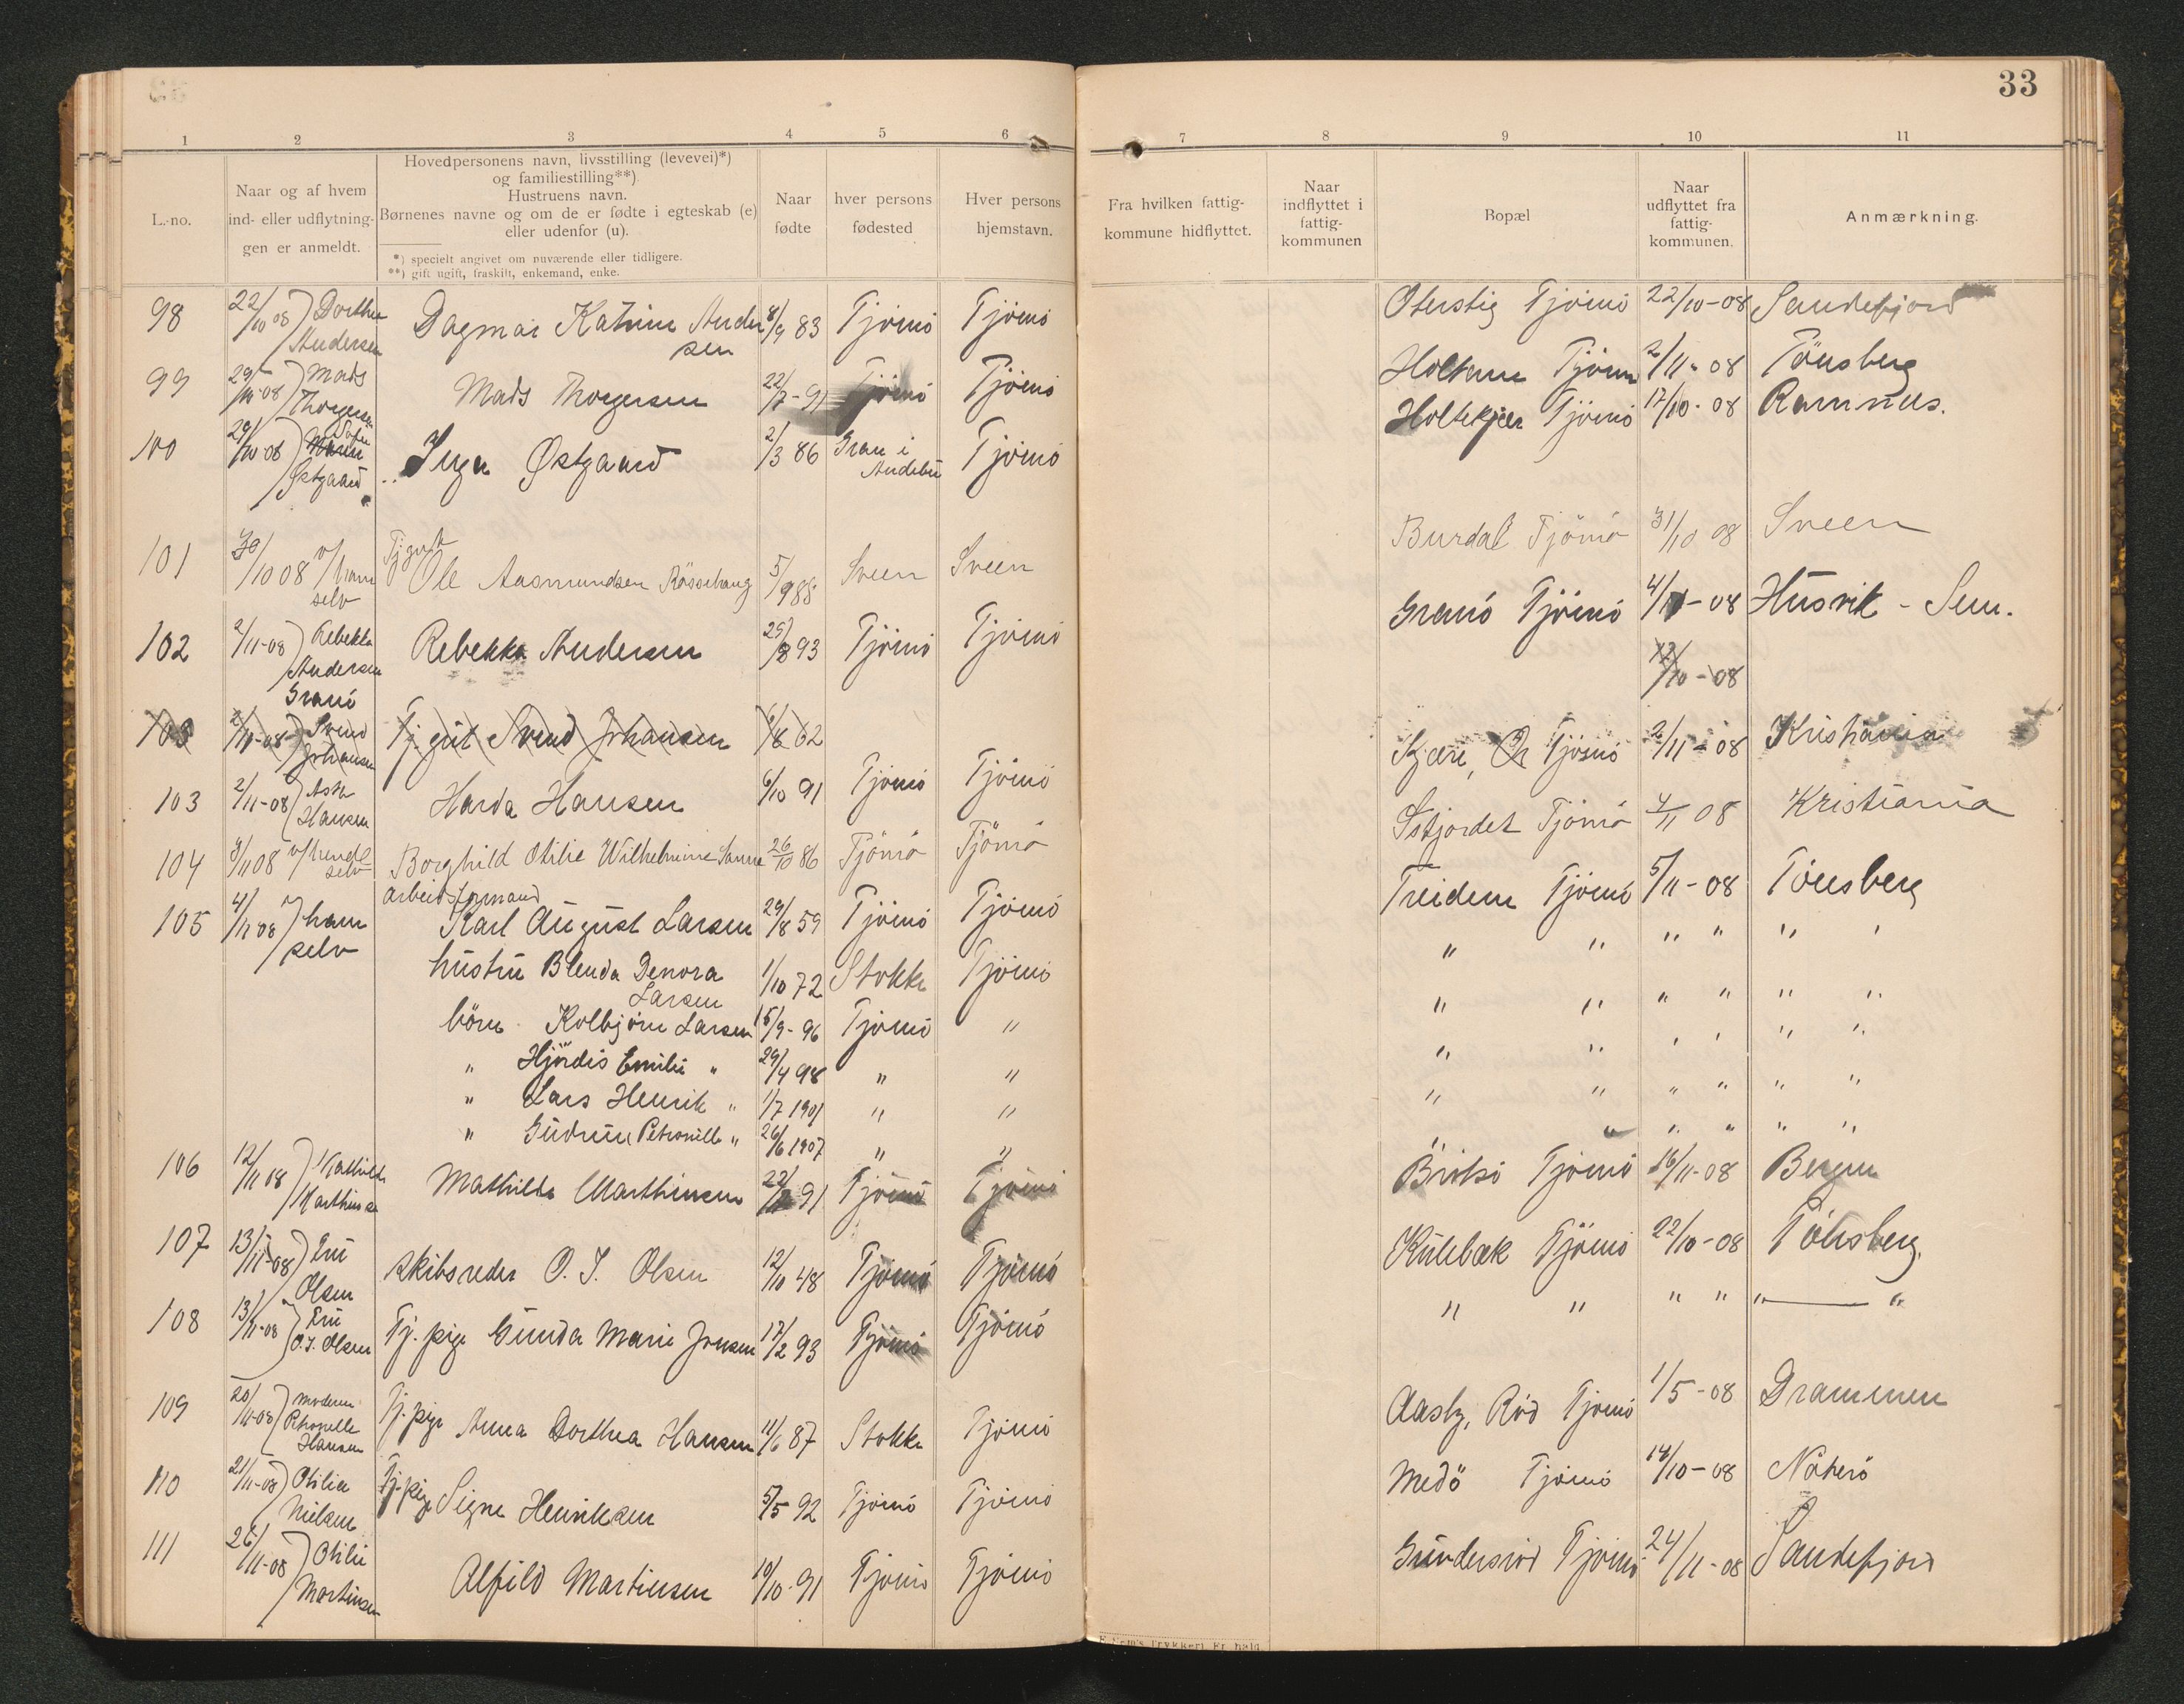 33
1 2 3 4 5 6 7 8 9 10 11
L.-no.
Naar og af hvem
ind- eller udflytnin-
gen er anmeldt.
Hovedpersonens navn, livsstilling (levevei)*)
og familiestilling**).
Hustruens navn.
Børnenes navne og om de er fødte i egteskab (e)
eller udenfor (u).
*) specielt angivet om nuværende eller tidligere.
**) gift ugift, fraskilt, enkemand, enke.
Naar
fødte
hver persons
fødested
Hver persons
hjemstavn.
Fra hvilken fattig-
kommune hidflyttet.
Naar
indflyttet i
fattig-
kommunen
Bopæl
Naar
udflyttet fra
fattig-
kommunen.
Anmærkning.
98 22/10 08 Dorthea Dagmar Katrine Ander 8/9 83 Tjömö Tjömö Oterstig Tjömö 22/10-08 Sandefjord
Andersen sen
99 29/10-08 Mads Mads Thorgersen 22/7-91 Tjömö Tjömö Tjömö 2/11-08 Tönsberg
Thorgersen
100 29/10-08 Inga Østgaard 2/3 86 Gran i Tjömö Holtekjær Tjömö 17/10-08 Ramnæs.
Østgaard Andebu
Tjgut
101 30/10 08 v/ham Ole Aasmundsen Rössehaug 5/9 88 Sveen Sveen Burdal Tjömö 31/10 08 Sveen
selv
102 2/11-08 Rebekka Rebekka Andersen 25/8 93 Tjömö Tjömö Granö Tjömö 4/11-08 Husvik - Sem.
Andersen
Granö 12/10-08
103 2/11-08 Svend Tj.gut Svend Johansen 1/8 62
Johansen
103 2/11-08 Harda Hansen 6/10 91 Tjömö Tjömö Kjære, Tjömö 2/11-08 Kristiania
Hansen
104 3/11 08 v/hende Borghild Otilie Wilhelmine Sanne 26/10 86 Tjömö Tjömö Tjömö 4/11 08 Kristiania
selv
arbeidsformand
105 4/11 08 v/ham Karl August Larsen 29/8 59 Tjömö Tjömö Treidene Tjömö 5/11-08 Tönsberg
selv
hustru Blenda Denora 1/10 72 Stokke Tjömö " " " " " "
Larsen
börn Kolbjörn Larsen 15/9-96 Tjömö " " " " " " "
" Hjördis Emilie " 29/4 98 " " " " " " " "
" Lars Henrik " 1/7 1901 " " " " " " " "
" Gudrun Petronille " 26/6 1907 " " " " " " " "
106 12/11 08 Mathilde Mathilde Marthinsen 22/ 91 Tjömö Tjömö Brötsö Tjömö 16/11-08 Bergen
Marthinsen
107 13/11-08 Fru skibsreder O. J. Olsen 12/10 48 Tjömö Tjömö Kulebæk Tjömö 22/10-08 Tönsberg.
Olsen
108 13/11-08 Fru Tj. pige Gunda Marie Jensen 17/2 93 Tjömö Tjömö " " " " " "
O.J. Olsen
109 20/11-08 moderen Tj. pige Anna Dorthea Hansen 11/6 87 Stokke Tjömö Aasly, Röd Tjömö 1/5-08 Drammen
Petronelle
Hansen
110 21/11-08 Otilia Tj. pige Signe Henriksen 5/5 92 Tjömö Tjömö Medö Tjömö 14/10-08 Nöterö
Nielsen
111 26/11-08 Otilie Alfild Martinsen 10/10-91 Tjömö Tjömö Gundersröd Tjömö 24/11-08 Sandefjord
Martinsen